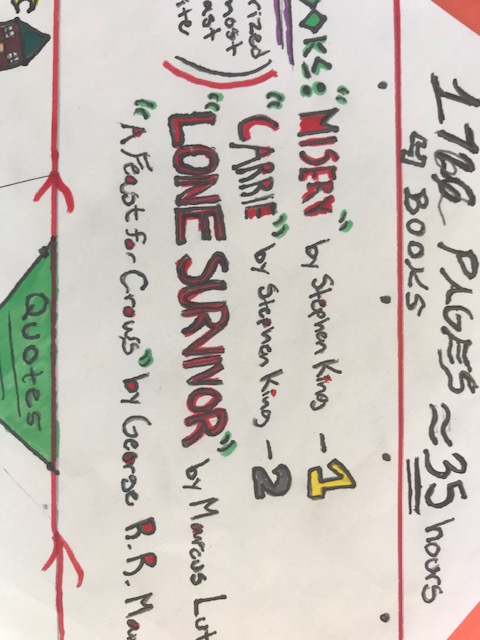 PAGES ≈ 35 hours
4 BOOKS
OOKS: "MISERY" by Stephen King - 1
rized
most
ast
ite
"CARRIE" by Stephen King - 2
"LONE SURVIVOR" by Marcus Lut
"A Feast for Crows" by George R.R. Ma
Quotes